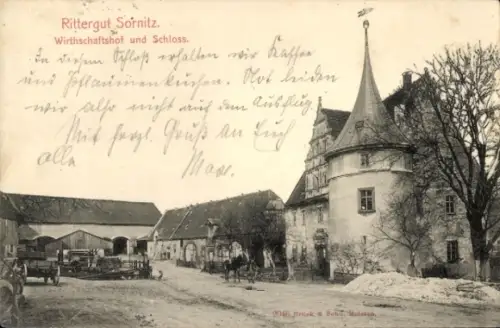 Rittergut Sornitz.
Wirthschaftshof und Schloss.
In diesem Schloss erhalten wir Kaffee
und Pflaumenkuchen. Not leiden
wir also nicht auf dem Ausflug
Mit herzl. Gruß an Euch
Alle
Max.